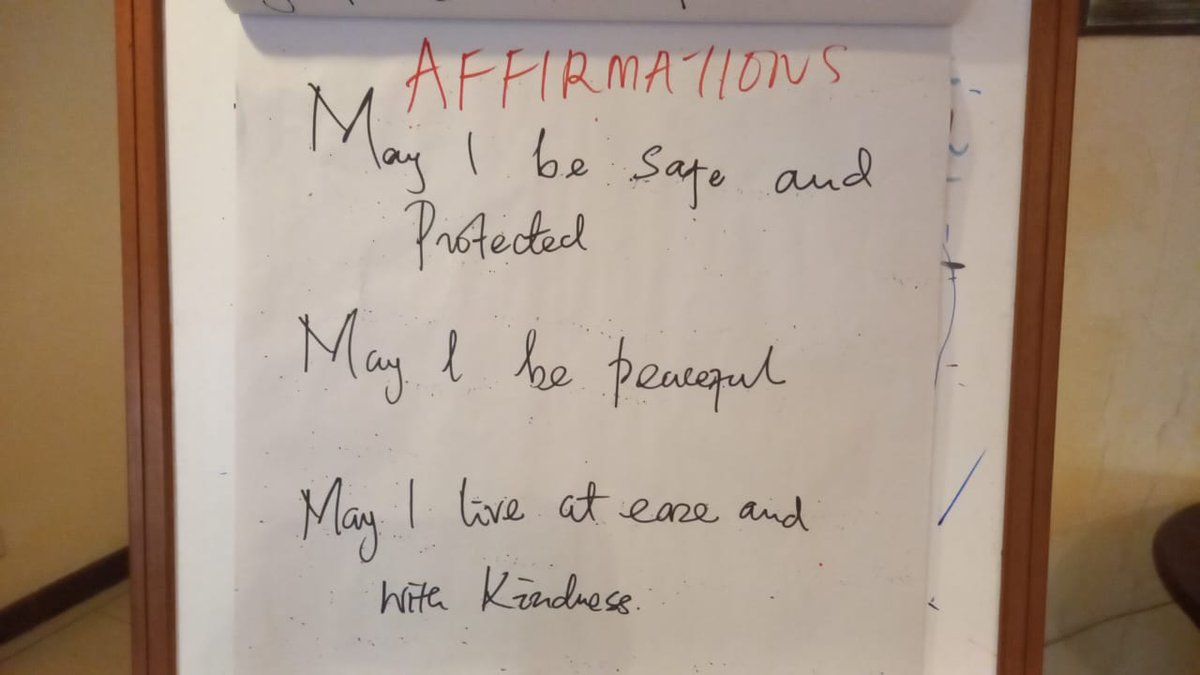 AFFIRMATIONS
May I be safe and
Protected
May I be peaceful
May I live at ease and
with Kindness.